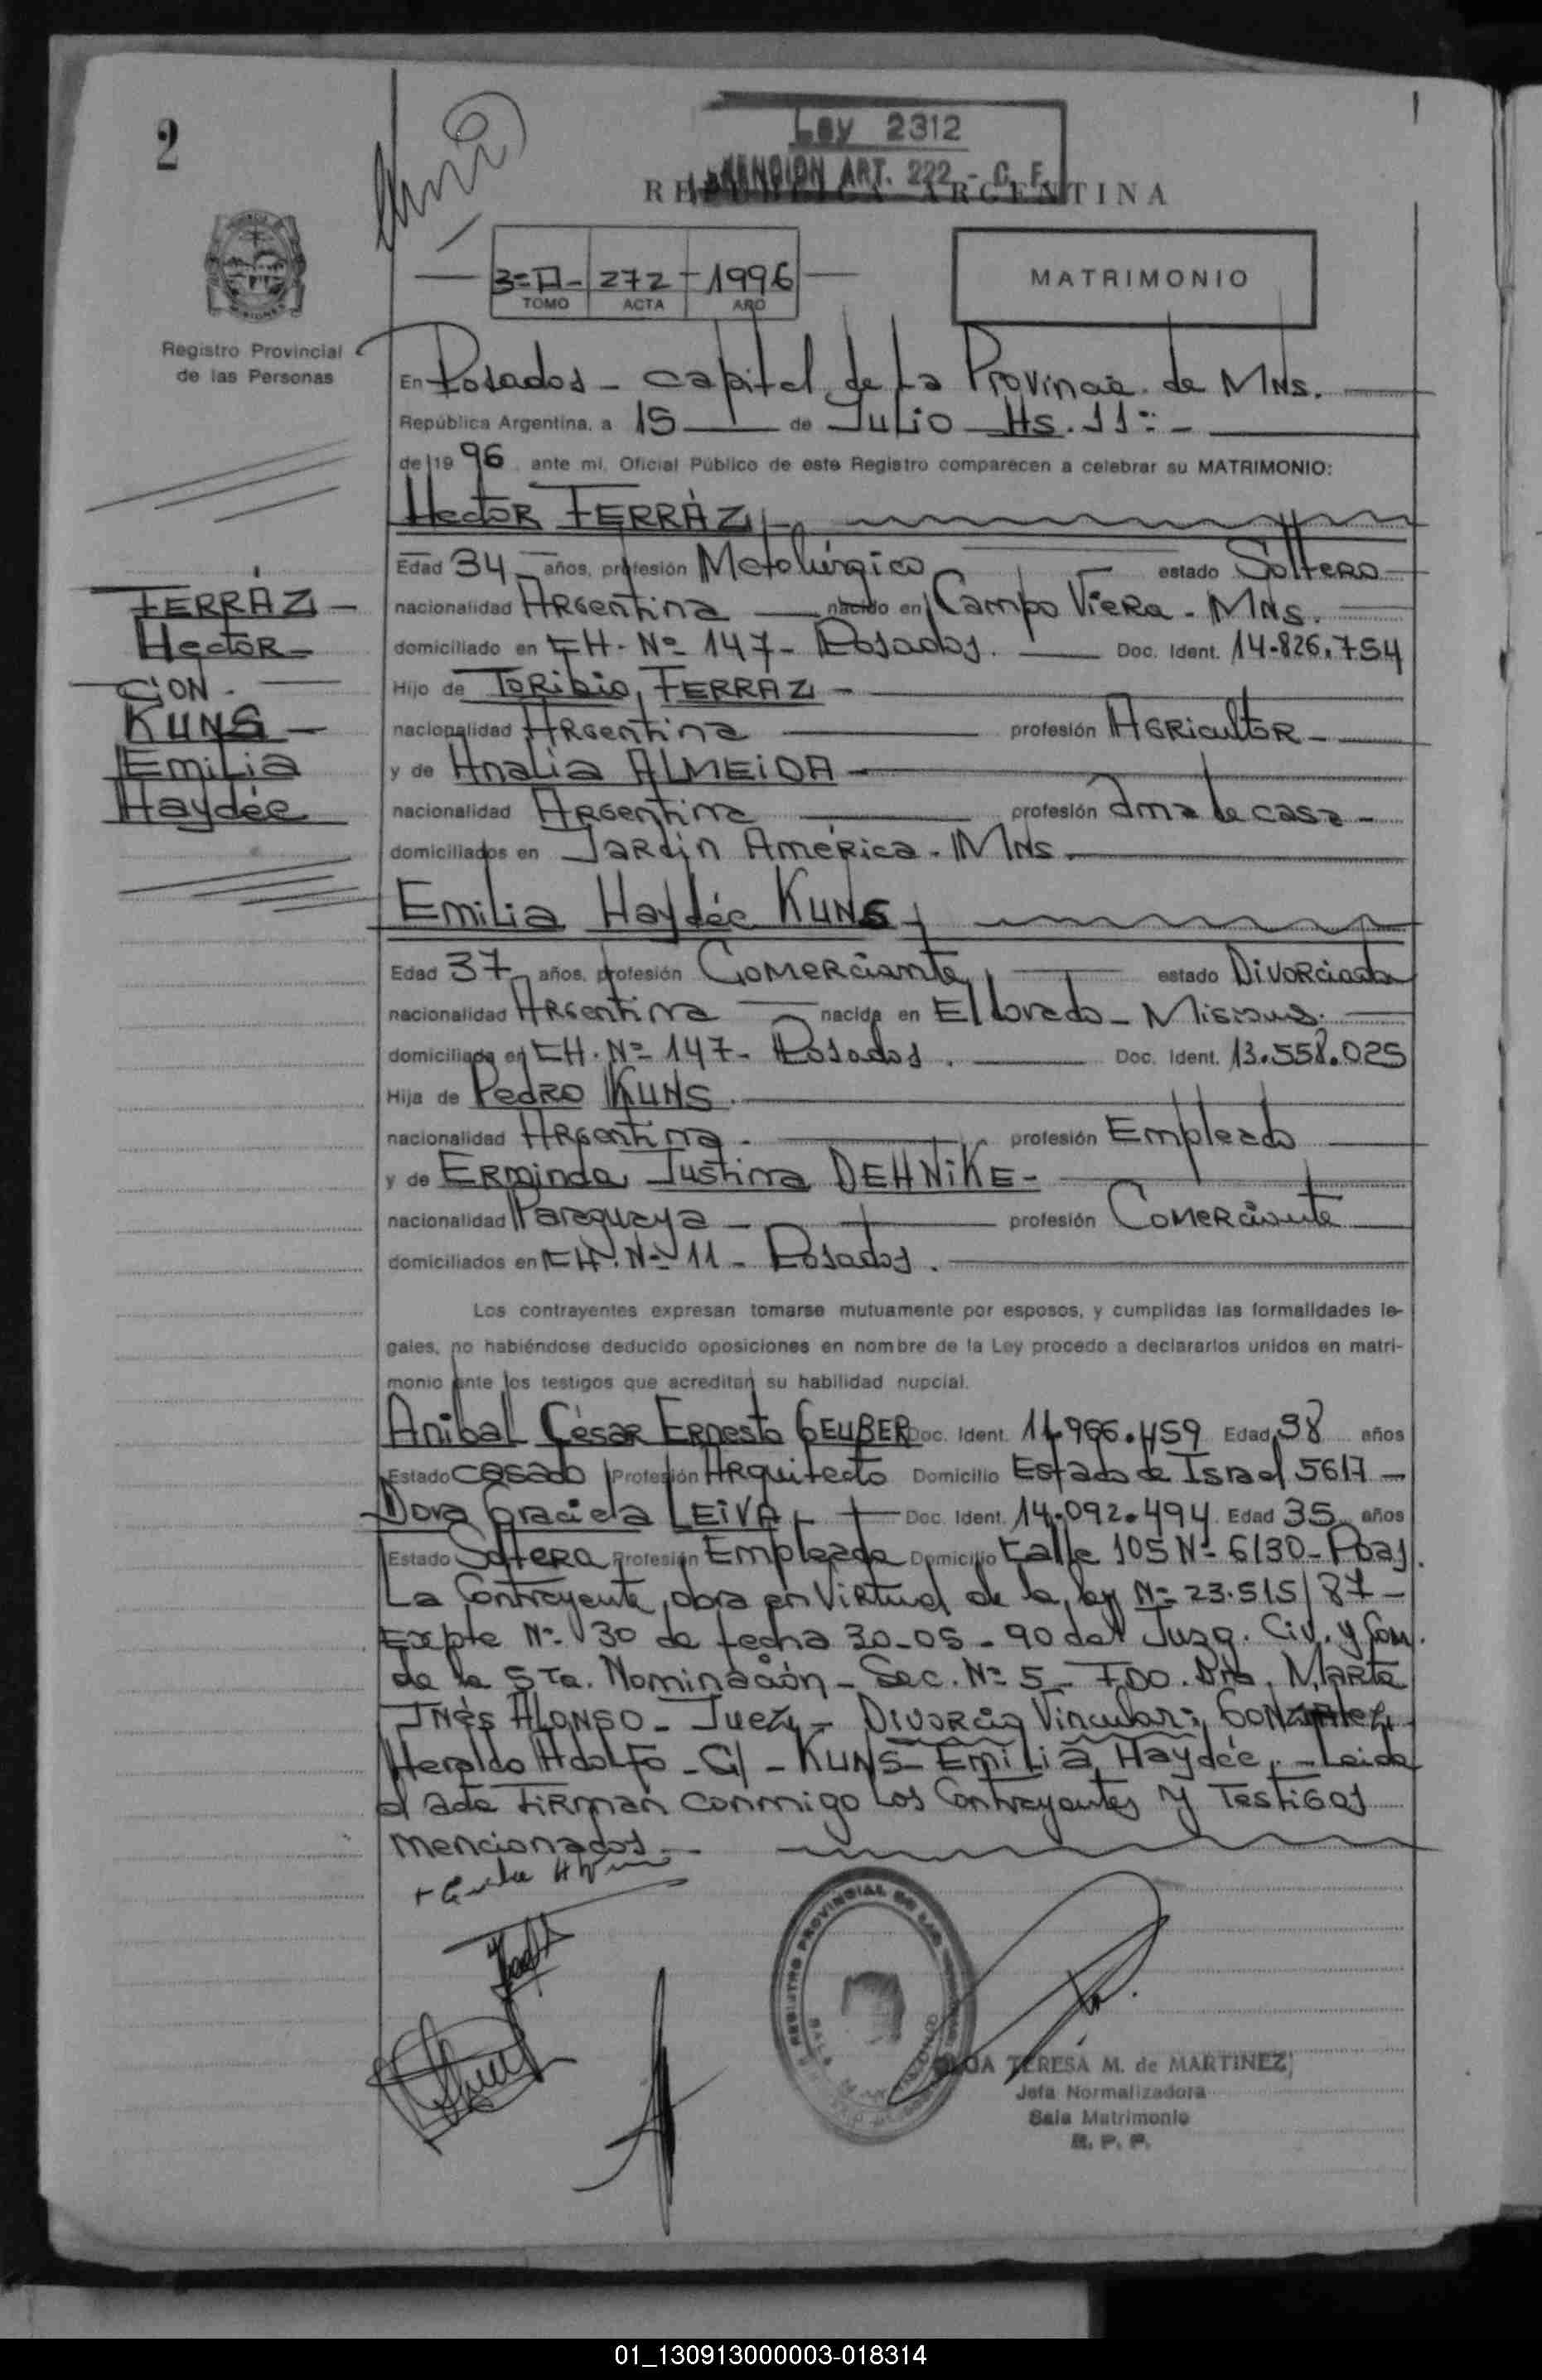 2
Ley 2312
MENCION ART. 222 - C. F.
REPUBLICA ARGENTINA
272 - 1996
TOMO ACTA AÑO
MATRIMONIO
Registro Provincial
de las Personas
En Posadas - capital de La Provincia de MNS.
República Argentina, a 15 de Julio Hs. 11:-
de 19 96, ante mi, Oficial Público de este Registro comparecen a celebrar su MATRIMONIO:
Hector FERRAZ
Edad 34 años, profesión Metalúrgico estado Soltero
nacionalidad Argentina nacido en Campo Viera - MNS.
domiciliado en CH. Nº 147 - Posadas. Doc. Ident. 14.826.754
Hijo de Toribio FERRAZ -
nacionalidad Argentina profesión Agricultor -
y de Analia ALMEIDA -
nacionalidad Argentina profesión ama de casa -
domiciliados en Jardin América - MNS.
FERRAZ -
Hector -
CON -
KUNS -
Emilia
Haydée
Emilia Haydée KUNS
Edad 37 años, profesión Comerciante estado Divorciada
nacionalidad Argentina nacida en Eldorado - Misiones.
domiciliada en CH. Nº 147 - Posadas. Doc. Ident. 13.558.025
Hija de Pedro KUNS.
nacionalidad Argentina. profesión Empleado
y de Erminda Justina DEHNIKE -
nacionalidad Paraguaya - profesión Comerciante
domiciliados en CH. Nº 11 - Posadas.
Los contrayentes expresan tomarse mutuamente por esposos, y cumplidas las formalidades le-
gales, no habiéndose deducido oposiciones en nombre de la Ley procedo a declararlos unidos en matri-
monio ante los testigos que acreditan su habilidad nupcial.
Anibal César Ernesto GEUBER Doc. Ident. 11.966.459 Edad 38 años
Estado casado Profesión Arquitecto Domicilio Estado de Israel 5617 -
Dora Graciela LEIVA Doc. Ident. 14.092.494 Edad 35 años
Estado Soltera Profesión Empleada Domicilio Calle 105 Nº 6130 - Pdas.
La Contrayente obra en Virtud de la ley Nº 23.515/87 -
Expte Nº 30 de fecha 30-05-90 del Juzg. Civ. y Com.
de la 5ta. Nominación - Sec. Nº 5 - FDO. Dra. Marta
Inés ALONSO - Juez - Divorcio Vincular: GONZALEZ
Heraldo Adolfo - C/ - KUNS - Emilia Haydée. - Leida
el acta firman conmigo los Contrayentes y Testigos
mencionados -
REGISTRO PROVINCIAL DE LAS
TERESA M. de MARTINEZ
Jefa Normalizadora
Sala Matrimonio
R. P. P.
01_130913000003-018314